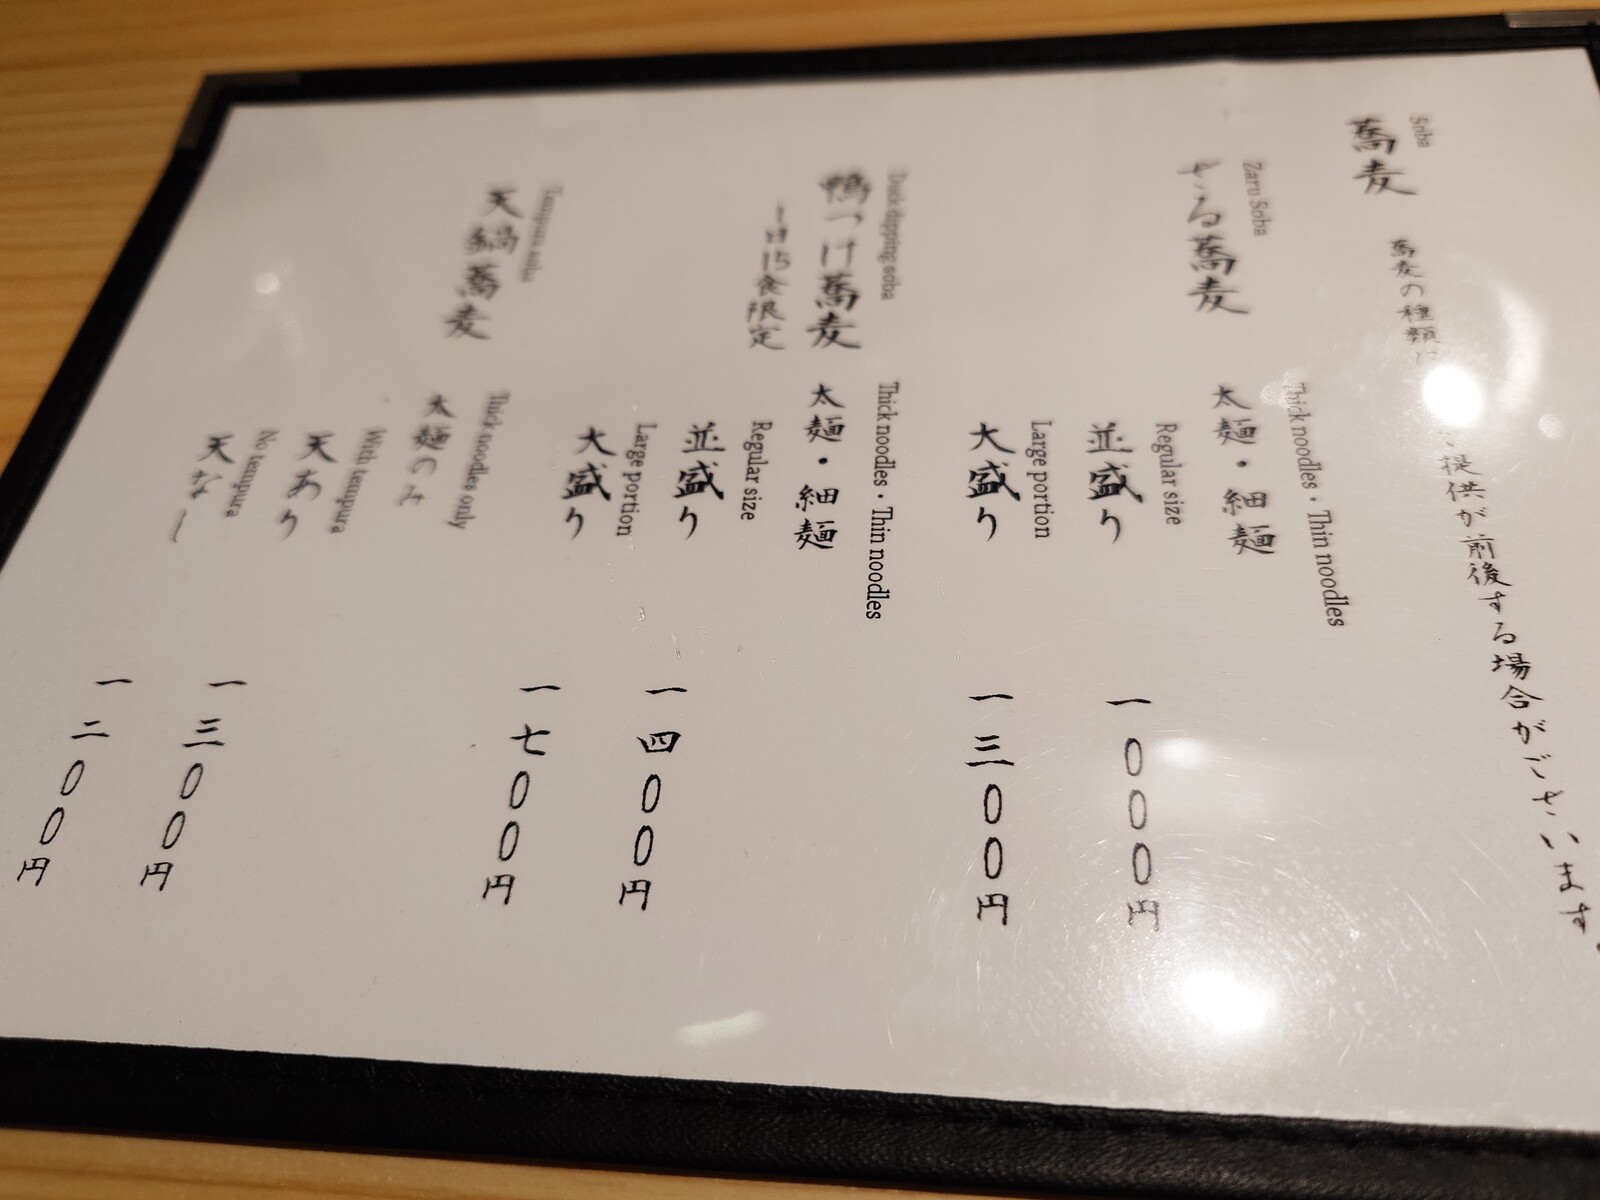 Soba
蕎麦
蕎麦の種類に
提供が前後する場合がございます。
Zaru Soba
ざる蕎麦
Thick noodles・Thin noodles
太麺・細麺
Regular size
並盛り 一〇〇〇円
Large portion
大盛り 一三〇〇円
Duck dipping soba
鴨つけ蕎麦
一日15食限定
Thick noodles・Thin noodles
太麺・細麺
Regular size
並盛り 一四〇〇円
Large portion
大盛り 一七〇〇円
Tempura soba
天鍋蕎麦
Thick noodles only
太麺のみ
With tempura
天あり 一三〇〇円
No tempura
天なし 一二〇〇円